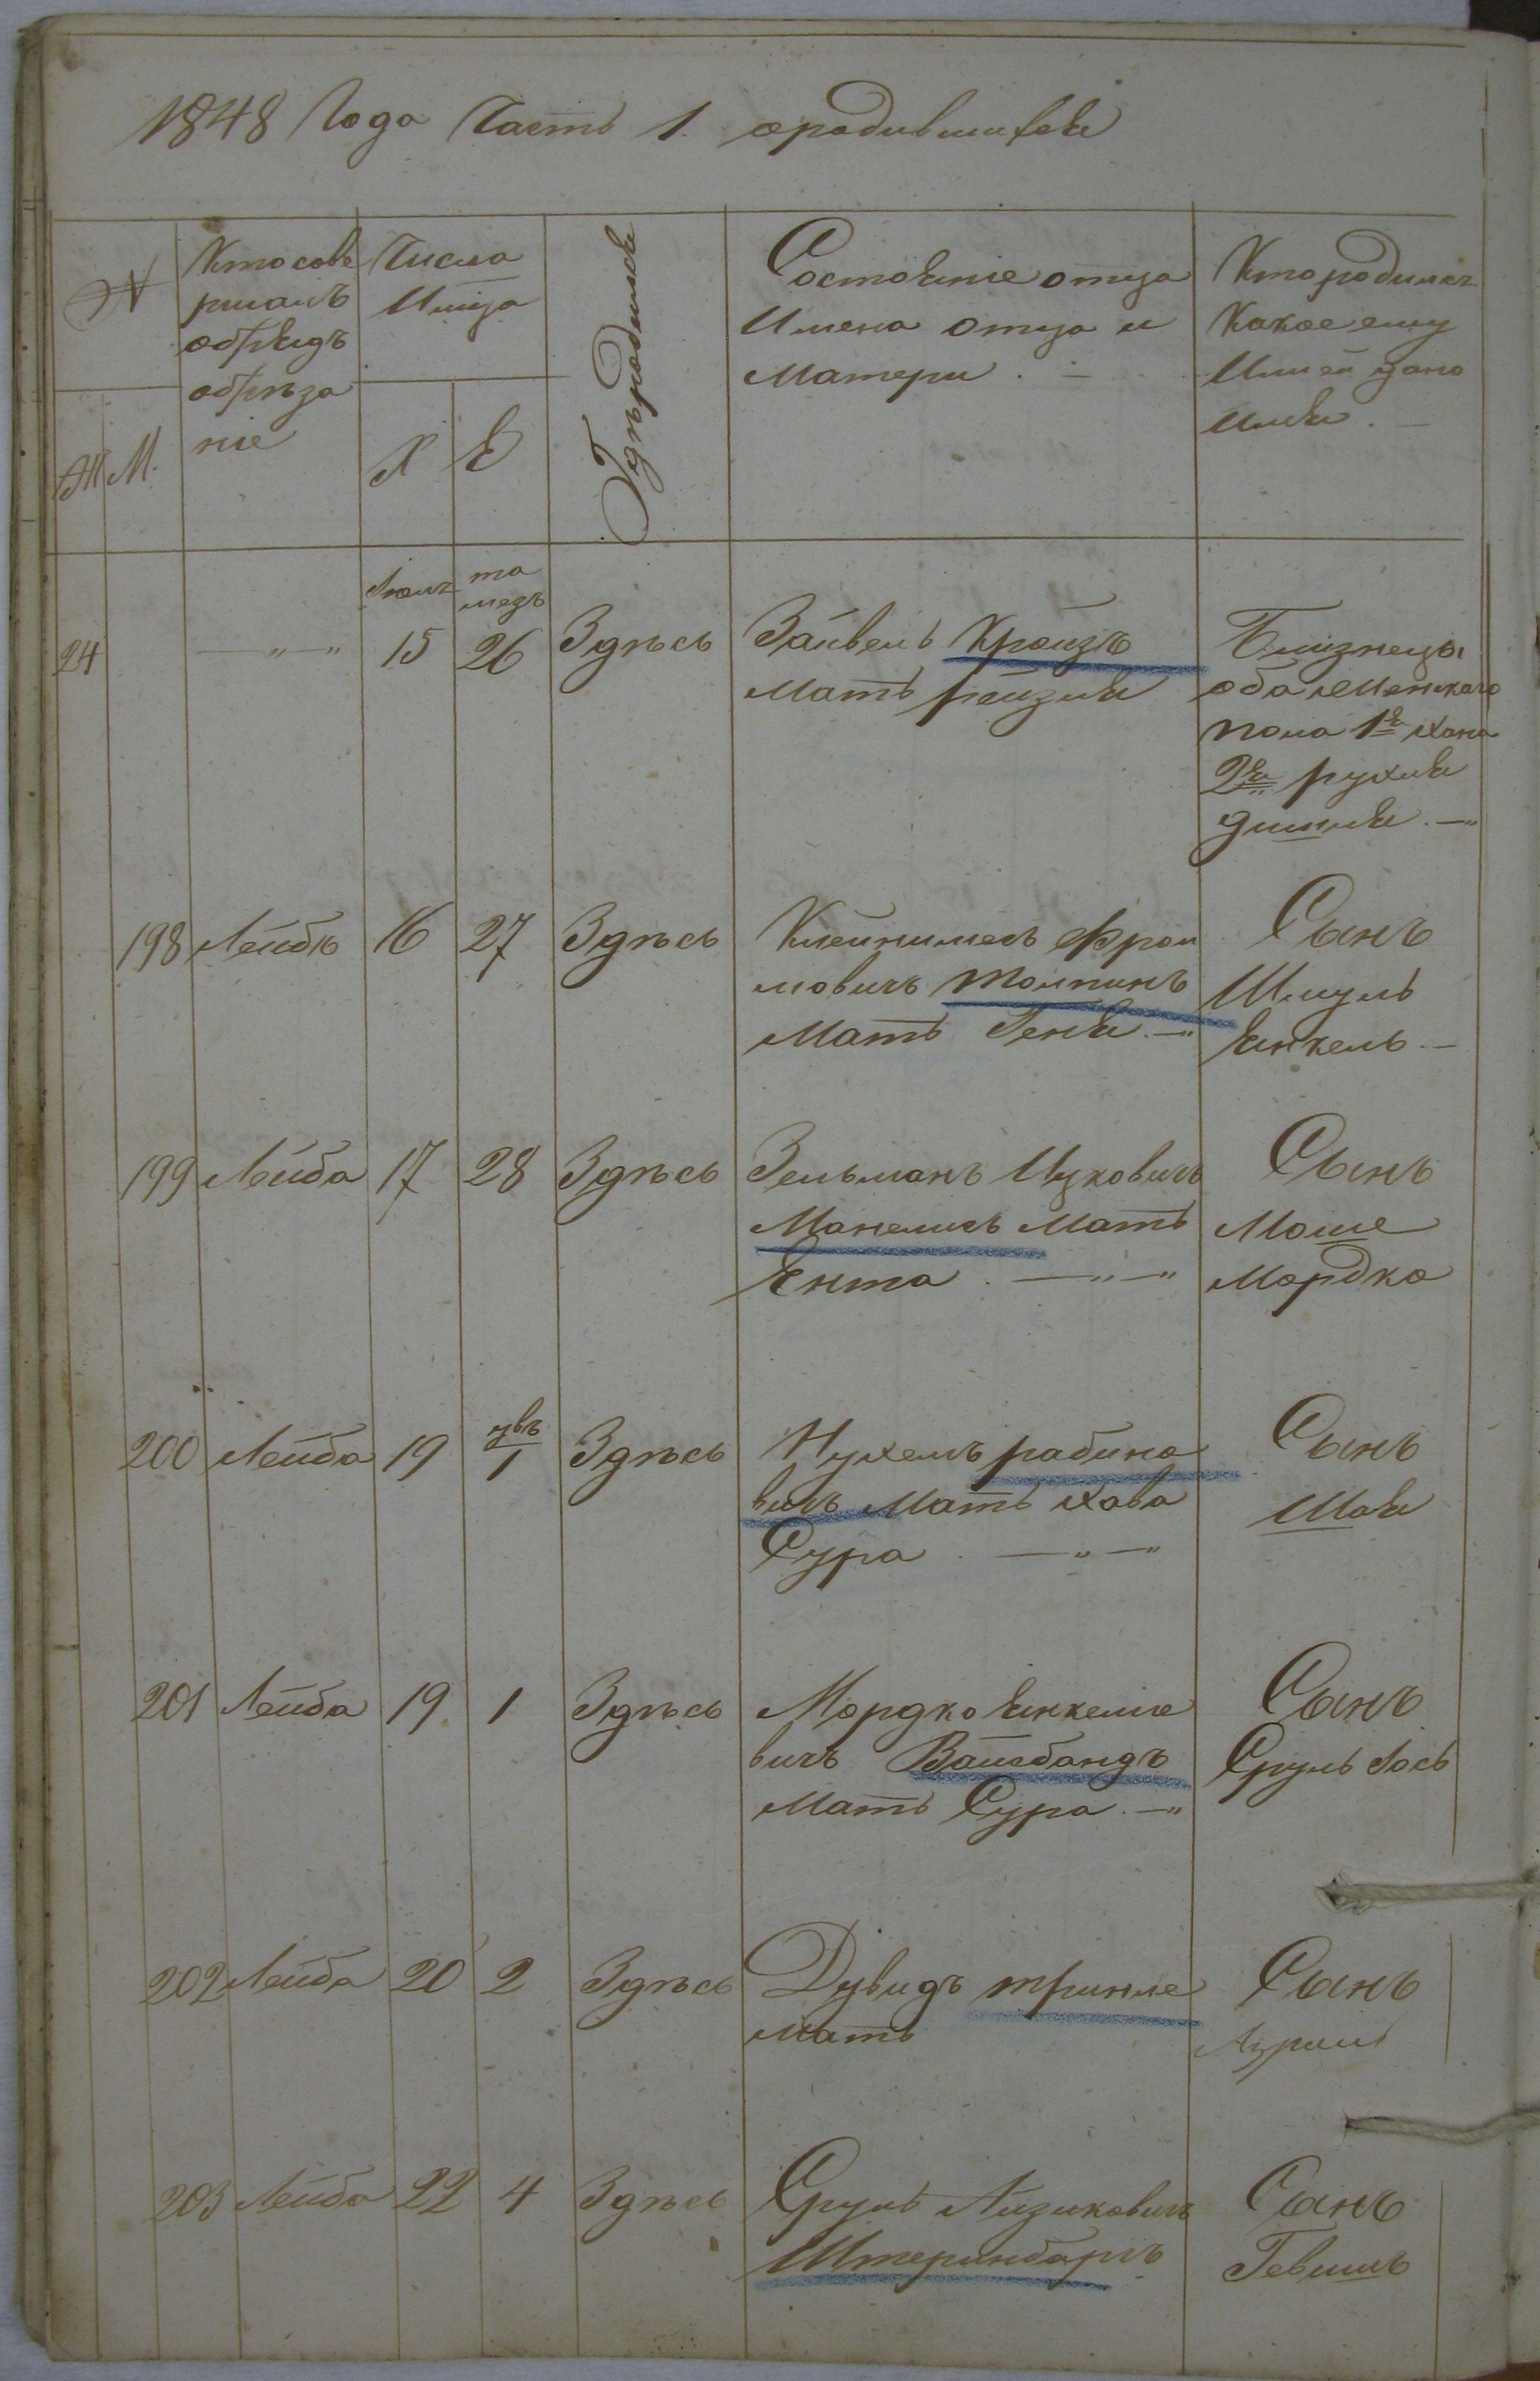 1848 Года Часть 1. ородившихся
№
Ктосове
ршалъ
обрядъ
обрѣза
ніе
Числа
Мцца
Гдѣродился
Состояніе отца
Имена отца и
Матери . —
Ктородилсь
Какое ему
Или ей дано
Имя . —
Ж М.
Х Е
Июль та
мезъ
24 —„—„ 15 26 Здѣсь
Зайвель Кройзъ
Мать рейзля
Близнецы
оба женскаго
пола 1я хана
2я рухля
Дишля . —„
198 Лейбъ 16 27 Здѣсь
Клейнимесъ Фрои
мовичъ Толпинъ
Мать Геня . —„
Сынъ
Шмуль
Янкель —
199 Лейба 17 28 Здѣсь
Зельманъ Ицковичъ
Манелисъ Мать
Ента . —„—„
Сынъ
Моше
Мордко
200 Лейба 19 увъ 1 Здѣсь
Нухемъ рабино
вичъ Мать хава
Сура . —„—„
Сынъ
Шая
201 Лейба 19 1 Здѣсь
Мордко Янкелие
вичъ Вайсбандъ
Мать Сура . —„
Сынъ
Сруль Іось
202 Лейба 20 2 Здѣсь
Дувидъ тринле
мать
Сынъ
Азраиль
203 Лейба 22 4 Здѣсь
Сруль Айзиковичъ
Штеринбаргъ
Сынъ
Гевшлъ